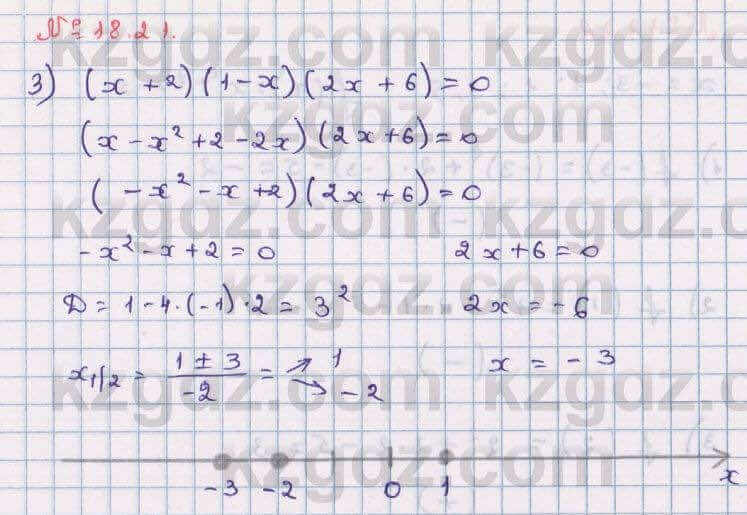 № 18.21.
3) (x + 2)(1 - x)(2x + 6) = 0
(x - x² + 2 - 2x)(2x + 6) = 0
(- x² - x + 2)(2x + 6) = 0
- x² - x + 2 = 0 2x + 6 = 0
D = 1 - 4 · (-1) · 2 = 3² 2x = - 6
x₁/₂ = (1 ± 3)/(-2) = ↗ 1 ↘ - 2 x = - 3
-3 -2 0 1 x
kzgdz.com